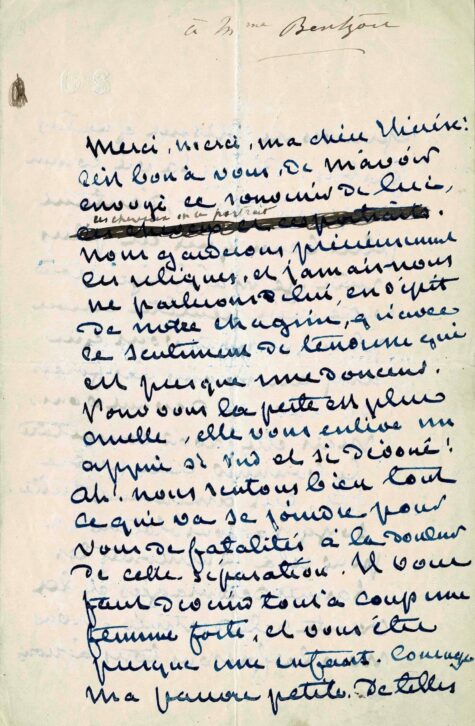 à Mme Bentzon
Merci, merci, ma chère Thérèse!
C'est bon à vous de m'avoir
envoyé ce souvenir de lui,
ces cheveux et ce portrait
ces cheveux et ces portraits.
Nous garderons pieusement
ces reliques, et jamais nous
ne parlerons de lui, en dépit
de notre chagrin, qu'avec
le sentiment de tendresse qui
est presque une douceur.
Pour vous la perte est plus
cruelle, elle vous enlève un
appui si vrai et si dévoué!
Ah! nous sentons bien tout
ce qui va se joindre pour
vous de fatalités à la douleur
de cette séparation. Il vous
faut devenir tout à coup une
femme forte, et vous êtes
presque une enfant. Courage
ma pauvre petite. De telles